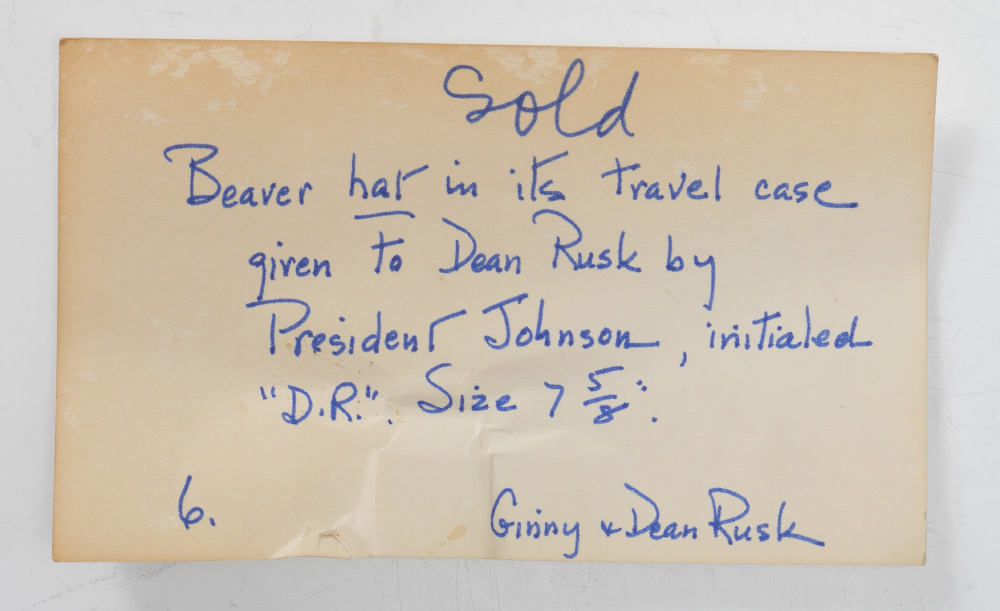 Sold
Beaver hat in its travel case
given to Dean Rusk by
President Johnson, initialed
"D.R.". Size 7 5/8".
6. Ginny & Dean Rusk